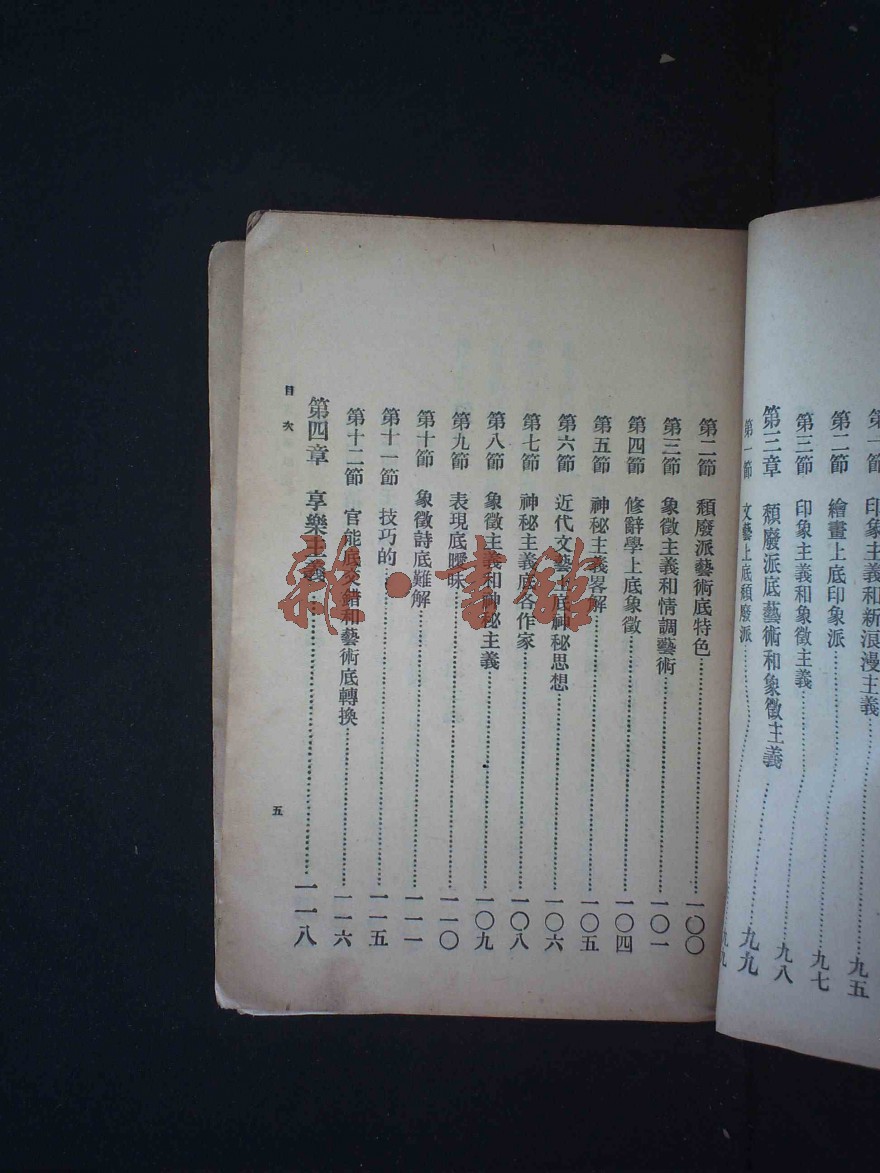 第一節 印象主義和新浪漫主義……九五
第二節 繪畫上底印象派……九七
第三節 印象主義和象徵主義……九八
第三章 頹廢派底藝術和象徵主義……九九
第一節 文藝上底頹廢派……九九
第二節 頹廢派藝術底特色……一〇〇
第三節 象徵主義和情調藝術……一〇一
第四節 修辭學上底象徵……一〇四
第五節 神秘主義畧解……一〇五
第六節 近代文藝上底神秘思想……一〇六
第七節 神秘主義底各作家……一〇八
第八節 象徵主義和神秘主義……一〇九
第九節 表現底曖昧……一一〇
第十節 象徵詩底難解……一一一
第十一節 技巧的……一一五
第十二節 官能底交錯和藝術底轉換……一一六
第四章 享樂主義……一一八
目次
五
雜·書館